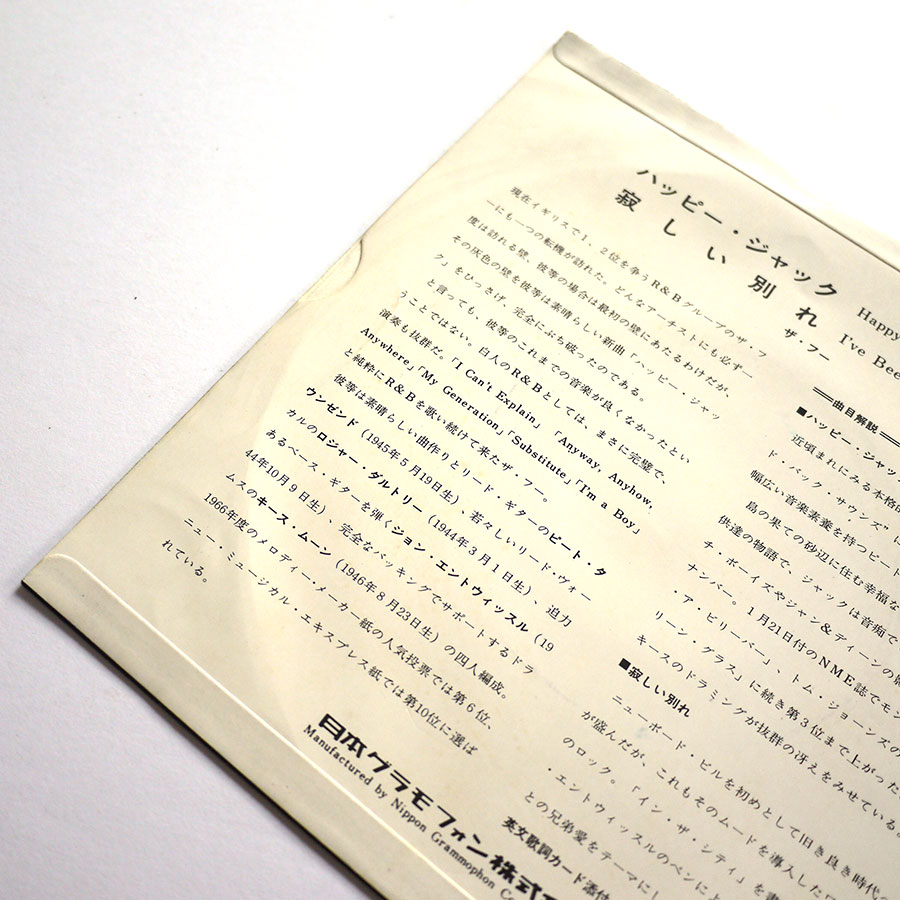 ハッピー・ジャック Happy
寂しい別れ I've Bee
ザ・フー
現在イギリスで1、2位を争うR&Bグループのザ・フ
ーにも一つの転機が訪れた。どんなアーチストにも必ず一
度は訪れる壁、彼等の場合は最初の壁にあたるわけだが、
その灰色の壁を彼等は素晴らしい新曲「ハッピー・ジャッ
ク」をひっさげ、完全にぶち破ったのである。
と言っても、彼等のこれまでの音楽が良くなかったとい
うことではない。白人のR&Bとしては、まさに完璧で、
演奏も抜群だ。「I Can't Explain」「Anyway, Anyhow,
Anywhere」「My Generation」「Substitute」「I'm a Boy」
と純粋にR&Bを歌い続けて来たザ・フー。
彼等は素晴らしい曲作りとリード・ギターのピート・タ
ウンゼンド（1945年5月19日生）、若々しいリード・ヴォー
カルのロジャー・ダルトリー（1944年3月1日生）、迫力
あるベース・ギターを弾くジョン・エントウイッスル（19
44年10月9日生）、完全なバッキングでサポートするドラ
ムスのキース・ムーン（1946年8月23日生）の四人編成。
1966年度のメロディー・メーカー紙の人気投票では第6位、
ニュー・ミュージカル・エキスプレス紙では第10位に選ば
れている。
日本グラモフォン株式
Manufactured by Nippon Grammophon Co
曲目解説
■ハッピー・ジャッ
近頃まれにみる本格的
ド・バック・サウンズ"
幅広い音楽素養を持つピート
島の果ての砂辺に住む幸福な
供達の物語で、ジャックは音痴で
チ・ボーイズやジャン&ディーンの
ナンバー。1月21日付のNME誌でモン
・ア・ビリーバー」、トム・ジョーンズの
リーン・グラス」に続き第3位まで上がった
キースのドラミングが抜群の冴えをみせている。
■寂しい別れ
ニューボード・ビルを初めとして旧き良き時代の
が盛んだが、これもそのムードを導入した
のロック。「イン・ザ・シティ」を書
・エントウィッスルのペンによ
との兄弟愛をテーマにし
英文歌詞カード添付